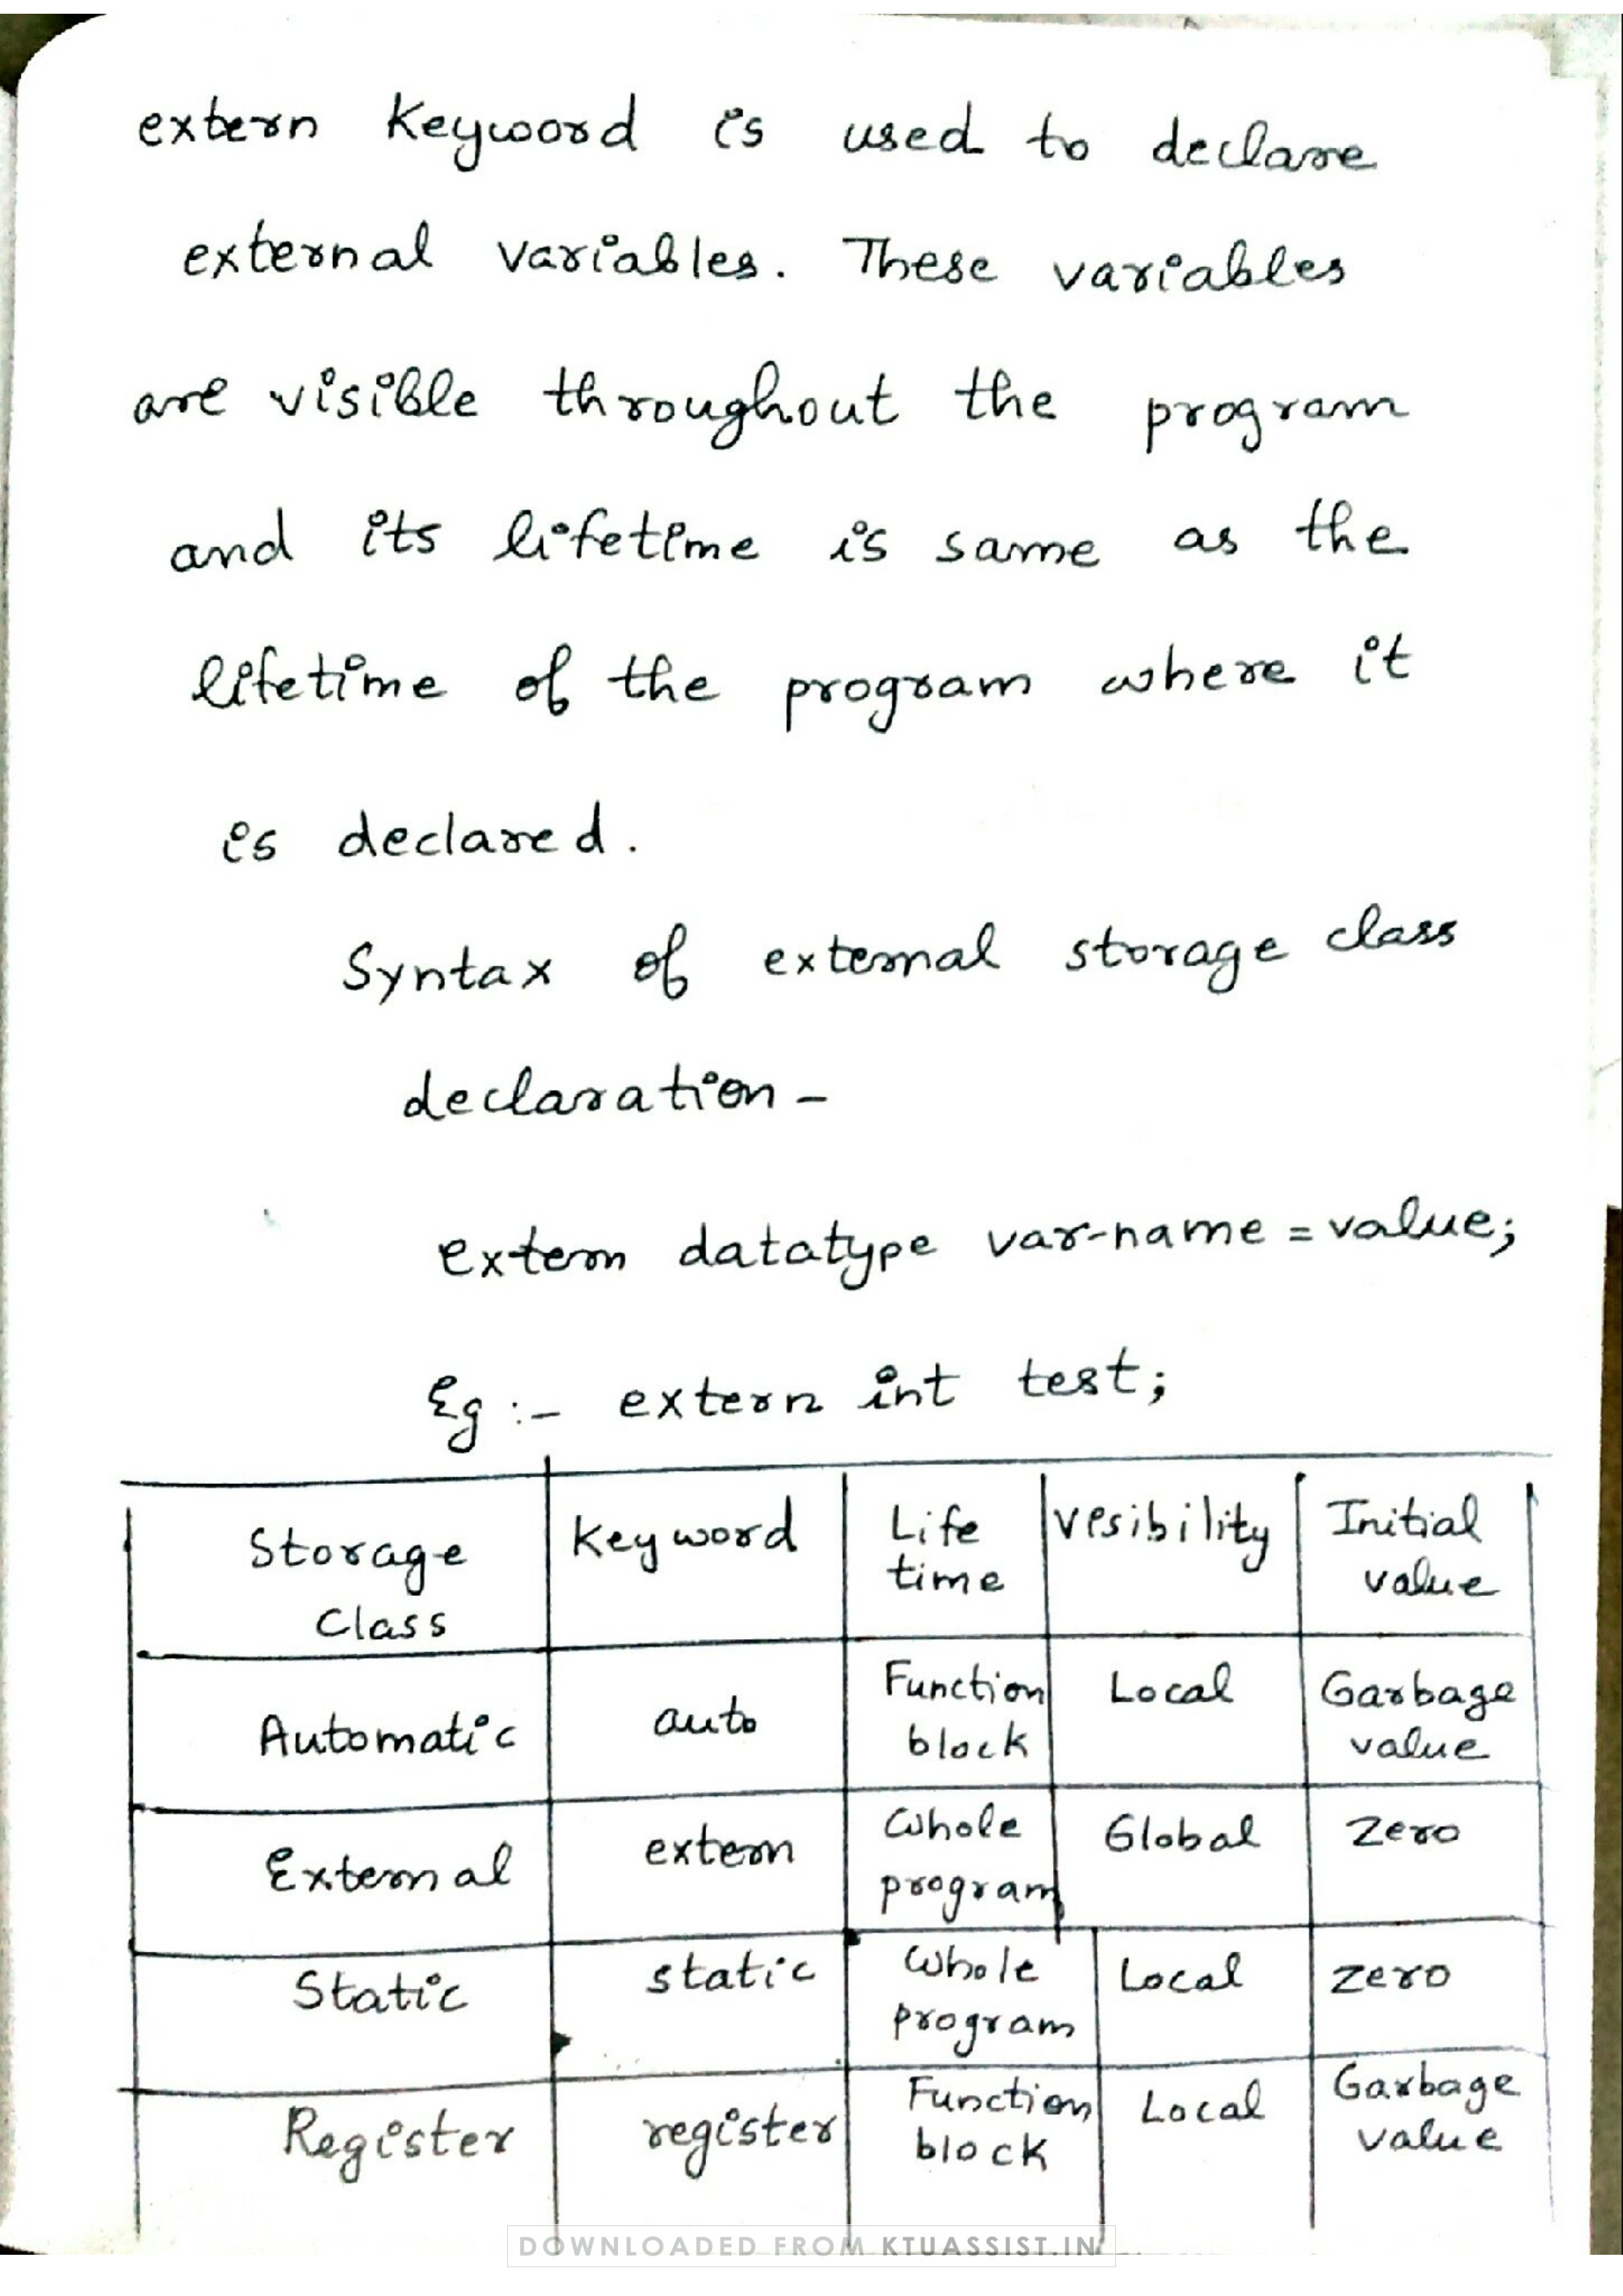 extern keyword is used to declare
external variables. These variables
are visible throughout the program
and its lifetime is same as the
lifetime of the program where it
is declared.
Syntax of external storage class
declaration -
extern datatype var-name = value;
Eg :- extern int test;
Storage Class | Keyword | Life time | Visibility | Initial value
Automatic | auto | Function block | Local | Garbage value
External | extern | Whole program | Global | Zero
Static | static | Whole program | Local | Zero
Register | register | Function block | Local | Garbage value
DOWNLOADED FROM KTUASSIST.IN